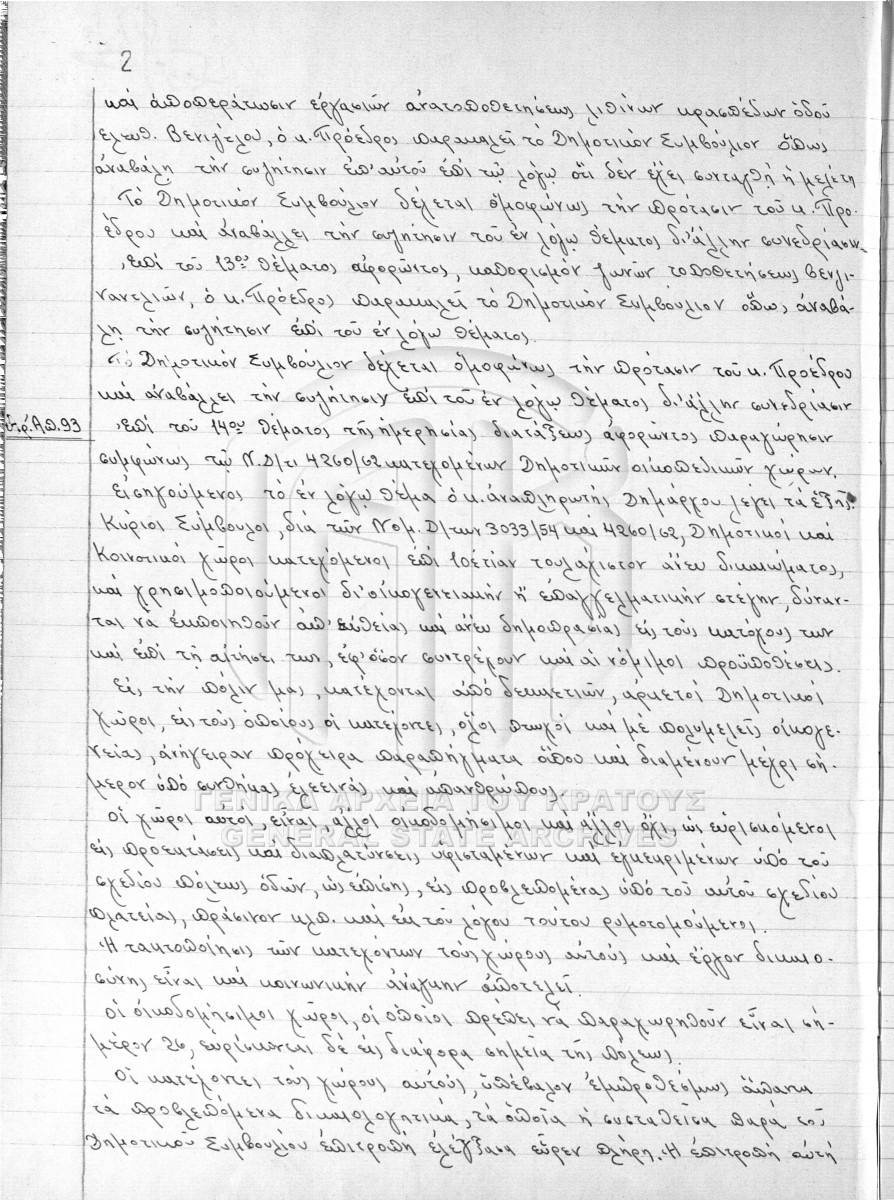 2
και αποπεράτωσιν εργασιών ανατοποθετήσεως λιθίνων κρασπέδων οδού
Ελευθ. Βενιζέλου, ο κ. Πρόεδρος παρακαλεί το Δημοτικόν Συμβούλιον όπως
αναβάλη την συζήτησιν επ' αυτού επί τω λόγω ότι δεν έχει συνταχθή η μελέτη
Το Δημοτικόν Συμβούλιον δέχεται ομοφώνως την πρότασιν του κ. Προ-
έδρου και αναβάλλει την συζήτησιν του εν λόγω θέματος δι' άλλην συνεδρίασιν.
Επί του 13ου θέματος αφορώντος, καθορισμόν ζωνών τοποθετήσεως βενζι-
ναντλιών, ο κ. Πρόεδρος παρακαλεί το Δημοτικόν Συμβούλιον όπως αναβά-
λη την συζήτησιν επί του εν λόγω θέματος.
Το Δημοτικόν Συμβούλιον δέχεται ομοφώνως την πρότασιν του κ. Προέδρου
και αναβάλλει την συζήτησιν επί του εν λόγω θέματος δι' άλλην συνεδρίασιν
Αρ. Απ. 93
Επί του 14ου θέματος της ημερησίας διατάξεως αφορώντος παραχώρησιν
συμφώνως τω Ν.Δ/τι 4260/62 κατεχομένων Δημοτικών οικοπεδικών χώρων.
Εισηγούμενος το εν λόγω θέμα ο κ. αναπληρωτής Δημάρχου λέγει τα εξής:
Κύριοι Σύμβουλοι, διά των Νομ. Δ/των 3033/54 και 4260/62, Δημοτικοί και
Κοινοτικοί χώροι κατεχόμενοι επί 10ετίαν τουλάχιστον άνευ δικαιώματος,
και χρησιμοποιούμενοι δι' οικογενειακήν ή επαγγελματικήν στέγην, δύναν-
ται να εκποιηθούν απ' ευθείας και άνευ δημοπρασίας εις τους κατόχους των
και επί τη αιτήσει των, εφ' όσον συντρέχουν και αι νόμιμοι προϋποθέσεις.
Εις την πόλιν μας, κατέχονται από δεκαετιών, αρκετοί Δημοτικοί
χώροι, εις τους οποίους οι κατέχοντες, όλοι πτωχοί και με πολυμελείς οικογε-
νείας, ανήγειραν πρόχειρα παραπήγματα όπου και διαμένουν μέχρι σή-
μερον υπό συνθήκας ελεεινάς και απανθρώπους.
ΓΕΝΙΚΑ ΑΡΧΕΙΑ ΤΟΥ ΚΡΑΤΟΥΣ
GENERAL STATE ARCHIVES
Οι χώροι αυτοί, είναι, άλλοι οικοδομήσιμοι και άλλοι όχι, ως ευρισκόμενοι
εις προεκτάσεις και διαπλατύνσεις υφισταμένων και εγκεκριμένων υπό του
σχεδίου πόλεως οδών, ως επίσης, εις προβλεπομένας υπό του αυτού σχεδίου
πλατείας, πράσινον κλπ. και εκ του λόγου τούτου ρυμοτομούμενοι.
Η τακτοποίησις των κατεχόντων τους χώρους αυτούς και έργον δικαιο-
σύνης είναι και κοινωνικήν ανάγκην αποτελεί.
Οι οικοδομήσιμοι χώροι, οι οποίοι πρέπει να παραχωρηθούν είναι σή-
μερον 26, ευρίσκονται δε εις διάφορα σημεία της πόλεως.
Οι κατέχοντες τους χώρους αυτούς, υπέβαλον εμπροθέσμως άπαντα
τα προβλεπόμενα δικαιολογητικά, τα οποία η συσταθείσα παρά του
Δημοτικού Συμβουλίου επιτροπή ελέγξασα εύρεν πλήρη. Η επιτροπή αυτή